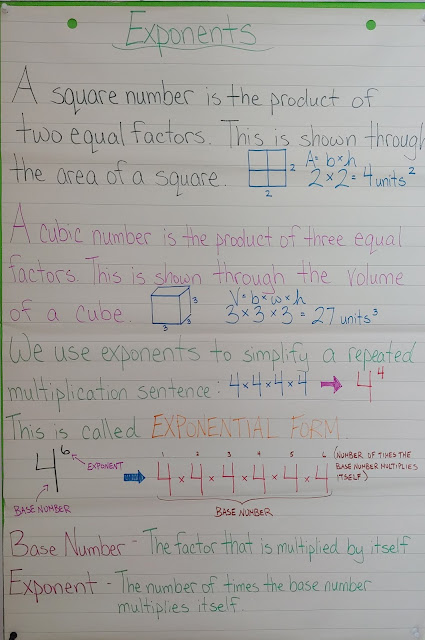 Exponents
A square number is the product of
two equal factors. This is shown through
the area of a square.
2
2
A = b × h
2 × 2 = 4 units²
A cubic number is the product of three equal
factors. This is shown through the volume
of a cube.
3
3
3
V = b × w × h
3 × 3 × 3 = 27 units³
We use exponents to simplify a repeated
multiplication sentence: 4 × 4 × 4 × 4 → 4⁴
This is called EXPONENTIAL FORM
4⁶
EXPONENT
BASE NUMBER
1 2 3 4 5 6 (NUMBER OF TIMES THE
BASE NUMBER MULTIPLIES
ITSELF)
4 × 4 × 4 × 4 × 4 × 4
BASE NUMBER
Base Number - The factor that is multiplied by itself
Exponent - The number of times the base number
multiplies itself.